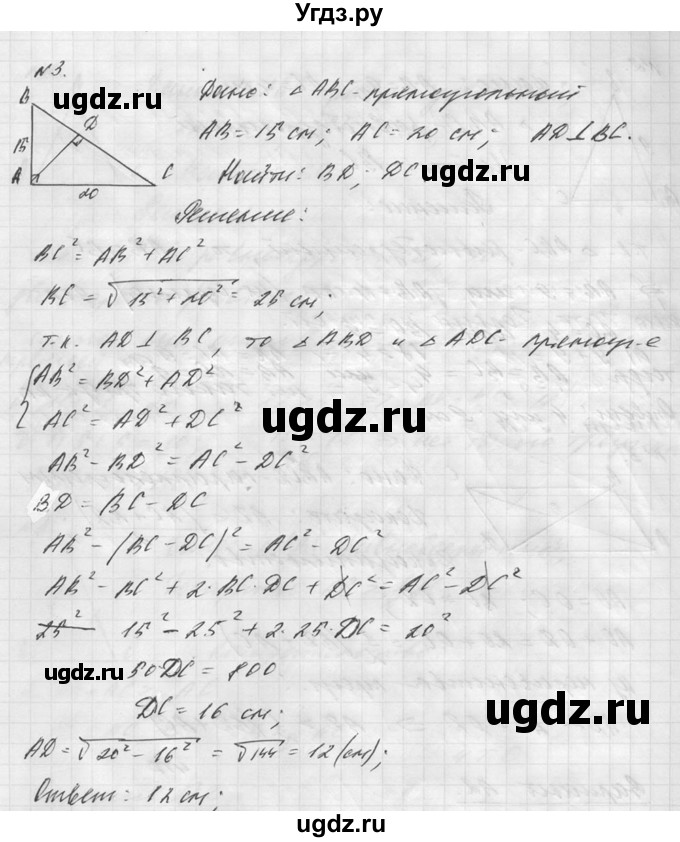 Угдз.ру
№3.
Дано: △ ABC-прямоугольный
B
D
15
AB = 15 см; AC = 20 см; AD ⊥ BC.
A
C
20
Найти: BD; DC
ugdz.ru
Решение:
BC² = AB² + AC²
BC = √15² + 20² = 25 см;
т.к. AD ⊥ BC, то △ ABD и △ ADC - прямоуг-е
AB² = BD² + AD²
ugdz.ru
AC² = AD² + DC²
AB² - BD² = AC² - DC²
BD = BC - DC
AB² - (BC - DC)² = AC² - DC²
AB² - BC² + 2·BC·DC + DC² = AC² - DC²
25² 15² - 25² + 2·25·DC = 20²
ugdz.ru
50·DC = 800
ugdz.ru
DC = 16 см;
AD = √20² - 16² = √144 = 12 (см);
Ответ: 12 см;
ugdz.ru